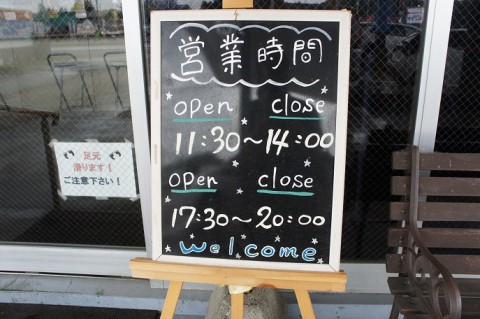 営業時間
open close
11:30~14:00
open close
17:30~20:00
welcome
足元
滑ります!
ご注意下さい!